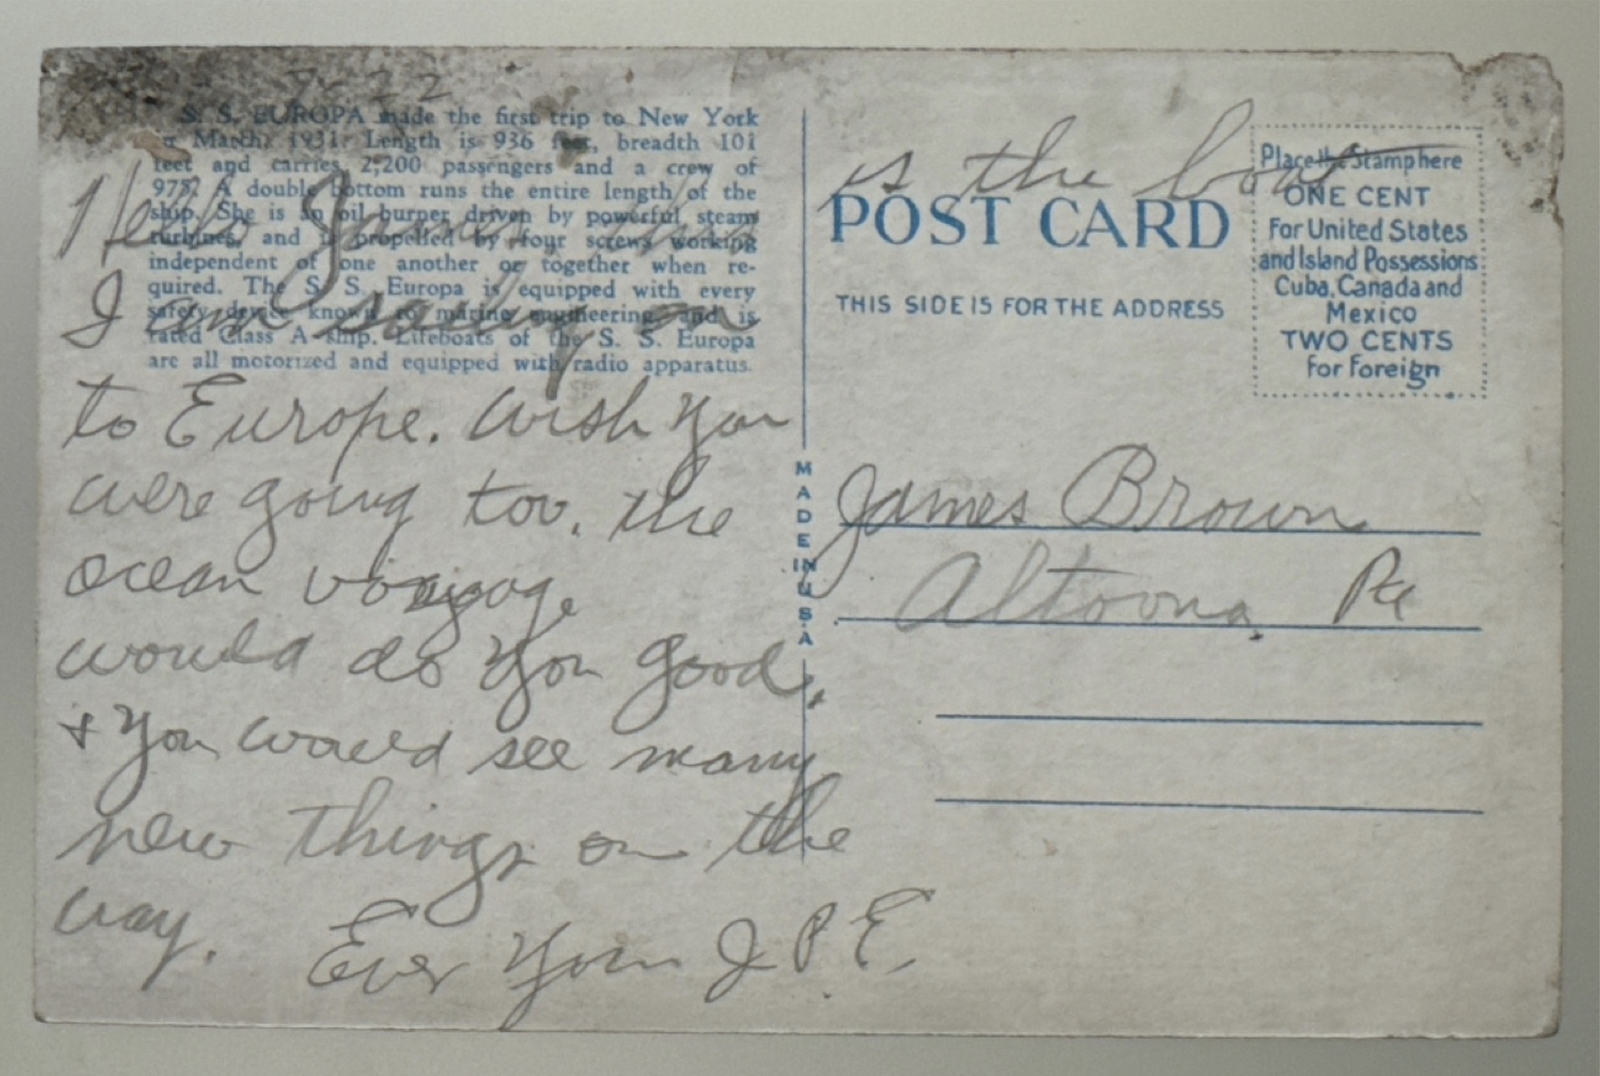 7-22
S. S. EUROPA made the first trip to New York
in March, 1931. Length is 936 feet, breadth 101
feet and carries 2,200 passengers and a crew of
975. A double bottom runs the entire length of the
ship. She is an oil burner driven by powerful steam
turbines, and is propelled by four screws working
independent of one another or together when re-
quired. The S. S. Europa is equipped with every
safety device known to marine engineering and is
rated Class A ship. Lifeboats of the S. S. Europa
are all motorized and equipped with radio apparatus.
Hello James this is the boat
I am sailing on
to Europe. Wish you
were going too. the
ocean voyage
would do you good,
+ you would see many
new things on the
way.
Ever Yours J P E.
POST CARD
THIS SIDE IS FOR THE ADDRESS
Place the Stamp here
ONE CENT
For United States
and Island Possessions
Cuba, Canada and
Mexico
TWO CENTS
for Foreign
MADE IN U.S.A
James Brown
Altoona, Pa